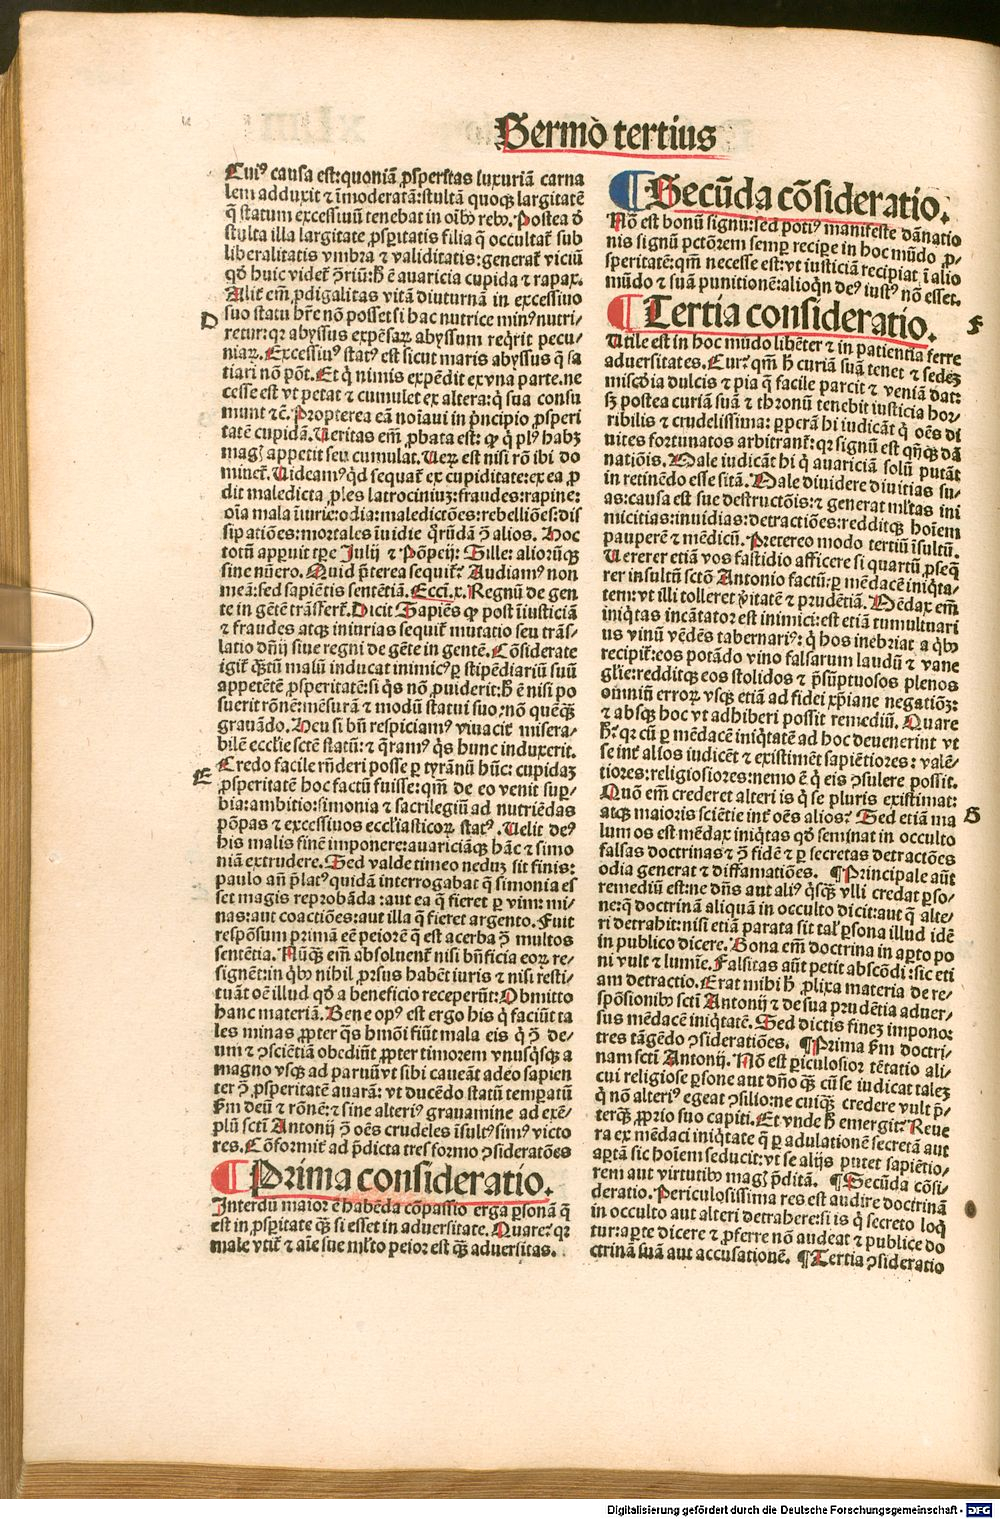 Sermo tertius
Cuiꝰ causa est: quoniā ꝓsperitas luxuriā carna
lem adduxit ⁊ īmoderatā: stultā quoqꝫ largitatē
q̄ statum excessiuū tenebat in oībꝰ rebꝰ. Postea ð
stulta illa largitate ꝓsperitatis filia q̄ occultat̄ sub
liberalitatis vmbra ⁊ validitatis: generat̄ viciū
qð huic videt̄ ꝯtriū: h̄ ē auaricia cupida ⁊ rapax.
Alit em̄ ꝓdigalitas vitā diuturnā in excessiuo
D
suo statu: hr̄e nō posset si hac nutrice minꝰ nutri⸗
retur: qꝛ abyssus expēsaꝝ abyssum reqͥrit pecu⸗
niaꝝ. Excessiuꝰ statꝰ est sicut maris abyssus q̄ sa
tiari nō pōt. Et qͥ nimis expēdit ex vna parte. ne
cesse est vt petat ⁊ cumulet ex altera: qͥ sua consu
munt ⁊c̄. Propterea eā noīaui in pͥncipio ꝓsperi
tatē cupidā. Ueritas em̄ ꝓbata est: ꝙ qͥ plꝰ habꝫ
magꝭ appetit seu cumulat. Ueꝝ est nisi rō ibi do
minet̄. Uideamꝰ qͥd sequat̄ ex cupiditate: ex ea ꝓ
dit maledicta ꝓles latrociniuꝫ: fraudes: rapine:
oīa mala īiurie: odia: maledictōes: rebelliōes: dis
sipatiōes: mortales īuidie qͥrūdā ꝯ̄ alios. Hoc
totū apparuit tp̄e Julij ⁊ Pōpeij: Sille: alioꝝūqꝫ
sine nūero. Quid p̄terea sequit̄? Audiamꝰ non
meā: sed sapiētis sentētiā. Ecci. x. Regnū de gen
te in gētē trāsfert̄. Dicit Sapiēs ꝙ post īiusticiā
⁊ fraudes atqꝫ iniurias sequit̄ mutatio seu trās⸗
latio dn̄ij siue regni de gēte in gentē. Cōsiderate
igit̄ qͣꝫtū malū inducat inimicꝰ ꝑ stipēdiariū suū
appetētē ꝓsperitatē: si qͥs nō ꝓuiderit: h̄ ē nisi po
suerit rōnē: mēsurā ⁊ modū statui suo, nō quēqꝫ
grauādo. Heu si bn̄ respiciamꝰ viuacit̄ misera⸗
bilē eccl'ie scte statū: ⁊ qͣramꝰ qͥs hunc induxerit.
E
Credo facile rn̄deri posse ꝑ tyrānū hūc: cupidaꝫ
ꝓsperitatē hoc factū fuisse: qm̄ de eo venit suꝑ⸗
bia: ambitio: simonia ⁊ sacrilegiū ad nutriēdas
pōpas ⁊ excessiuos eccl'iasticoꝝ statꝰ. Uelit deꝰ
his malis finē imponere: auariciāqꝫ hāc ⁊ simo
niā extrudere. Sed valde timeo neduꝫ sit finis:
paulo an̄ p̄latꝰ quidā interrogabat q̄ simonia es
set magis reprobāda: aut ea q̄ fieret ꝑ vim: mi⸗
nas: aut coactiōes: aut illa q̄ fieret argento. Fuit
respōsum primā eē peiorē q̄ est acerba ꝯ̄ multos
sentētia. Nūqꝫ em̄ absoluent̄ nisi bn̄ficia eoꝝ re⸗
signēt: in qͥbꝰ nihil ꝓrsus habēt iuris ⁊ nisi resti⸗
tuāt oē illud qð a beneficio receperūt: Obmitto
hanc materiā. Bene opꝰ est ergo his qͥ faciūt ta
les minas ꝓpter qͣs hmōi fiūt mala eis qͥ ꝯ̄ de⸗
um ⁊ ꝯsciētiā obediūt ꝓpter timorem vnusqͥsqꝫ a
magno vsqꝫ ad paruū vt sibi caueāt adeo sapien
ter ꝯ̄ ꝓsperitatē auarā: vt ducēdo statū tempatū
ẜm deū ⁊ rōnē: ⁊ sine alteriꝰ grauamine ad exē⸗
plū scti Antonij ꝯ̄ oēs crudeles īsultꝰ simꝰ victo
res. Cōformit̄ ad p̄dicta tres formo ꝯsideratōes
¶ Prima consideratio.
Interdū maior ē habēda cōpassio erga ꝑsonā q̄
est in ꝓsperitate qͣꝫ si esset in aduersitate. Quare? qꝛ
male vtit̄ ⁊ aīe sue ml̄to peior est qͣꝫ aduersitas.
¶ Secūda cōsideratio.
Nō est bonū signū: sed potiꝰ manifeste dānatio
nis signū pctōrem semꝑ recipe in hoc mūdo ꝓ⸗
speritatē: qm̄ necesse est: vt iusticiā recipiat ī alio
mūdo ⁊ suā punitionē: alioqͥn deꝰ iustꝰ nō esset.
¶ Tertia consideratio.
F
Utile est in hoc mūdo libēter ⁊ in patientia ferre
aduersitates. Cur? qm̄ h̄ curiā suā tenet ⁊ sedeꝫ
mis̄cðia dulcis ⁊ pia q̄ facile parcit ⁊ veniā dat:
sꝫ postea curiā suā ⁊ thronū tenebit iusticia hor⸗
ribilis ⁊ crudelissima: ꝑperā hi iudicāt qͥ oēs di
uites fortunatos arbitrant̄: qꝛ signū est qn̄qꝫ dā
natiōis. Male iudicāt hi qͥ auariciā solū putāt
in retinēdo esse sitā. Male diuidere diuitias su⸗
as: causa est sue destructōis: ⁊ generat ml̄tas ini
micitias: inuidias: detractiōes: redditqꝫ hoīem
pauperē ⁊ mēdicū. Pretereo modo tertiū īsultū.
Uererer etiā vos fastidio afficere si quartū ꝓseq̄
rer insultū sctō Antonio factū: ꝑ mēdacē iniqͥta⸗
tem: vt illi tolleret v̓itatē ⁊ prudētiā. Mēdax em̄
iniqͥtas incātator est inimici: est etiā tumultuari
us vinū vēdēs tabernariꝰ: qͥ hos inebriat a qͥbꝰ
recipit̄: eos potādo vino falsarum laudū ⁊ vane
gl'ie: redditqꝫ eos stolidos ⁊ p̄sūptuosos plenos
omniū erroꝝ vsqꝫ etiā ad fidei xp̄iane negationꝫ:
⁊ absqꝫ hoc vt adhiberi possit remediū. Quare
h̄? qꝛ cū ꝑ mēdacē iniqͥtatē ad hoc deuenerint vt
se int̄ alios iudicēt ⁊ existimēt sapiētiores: valē⸗
tiores: religiosiores: nemo ē qͥ eis ꝯsulere possit.
Quō em̄ crederet alteri is qͥ se pluris existimat:
G
atqꝫ maioris sciētie int̄ oēs alios? Sed etiā ma
lum os est mēdax iniqͥtas qð seminat in occulto
falsas doctrinas ⁊ ꝯ̄ fidē ⁊ ꝑ secretas detractōes
odia generat ⁊ diffamatiōes. ¶ Principale aūt
remediū est: ne dn̄s aut aliꝰ qͥsqꝫ vlli credat ꝑso⸗
ne: q̄ doctrinā aliquā in occulto dicit: aut q̄ alte⸗
ri detrahit: nisi etiā parata sit tal' ꝑsona illud idē
in publico dicere. Bona em̄ doctrina in aꝑto po
ni vult ⁊ lumīe. Falsitas aūt petit abscōdi: sic eti
am detractio. Erat mihi h̄ ꝓlixa materia de re⸗
spōsionibꝰ scti Antonij ⁊ de sua prudētia aduer⸗
sus mēdacē iniqͥtatē. Sed dictis fineꝫ imponoꝛ
tres tāgēdo ꝯsideratiōes. ¶ Prima ẜm doctri⸗
nam scti Antonij. Nō est ꝑiculosior tētatio ali⸗
cui religiose ꝑsone aut dn̄o qͣꝫ cū se iudicat taleꝫ
q̄ nō alteriꝰ egeat ꝯsilio: ne cuiqꝫ credere vult p̄⸗
terqꝫ ꝓprio suo capiti. Et vnde h̄ emergit? Reue
ra ex mēdaci iniqͥtate q̄ ꝑ adulationē secretā aut
aꝑtā sic hoīem seducit: vt se alijs putet sapiētio⸗
rem aut virtutibꝰ magꝭ p̄ditā. ¶ Secūda cōsi⸗
deratio. Periculosissima res est audire doctrinā
in occulto aut alteri detrahere: si is qͥ secreto loqͥ
tur: aꝑte dicere ⁊ ꝓferre nō audeat ⁊ publice do
ctrinā suā aut accusationē. ¶ Tertia ꝯsideratio
Digitalisierung gefördert durch die Deutsche Forschungsgemeinschaft - DFG